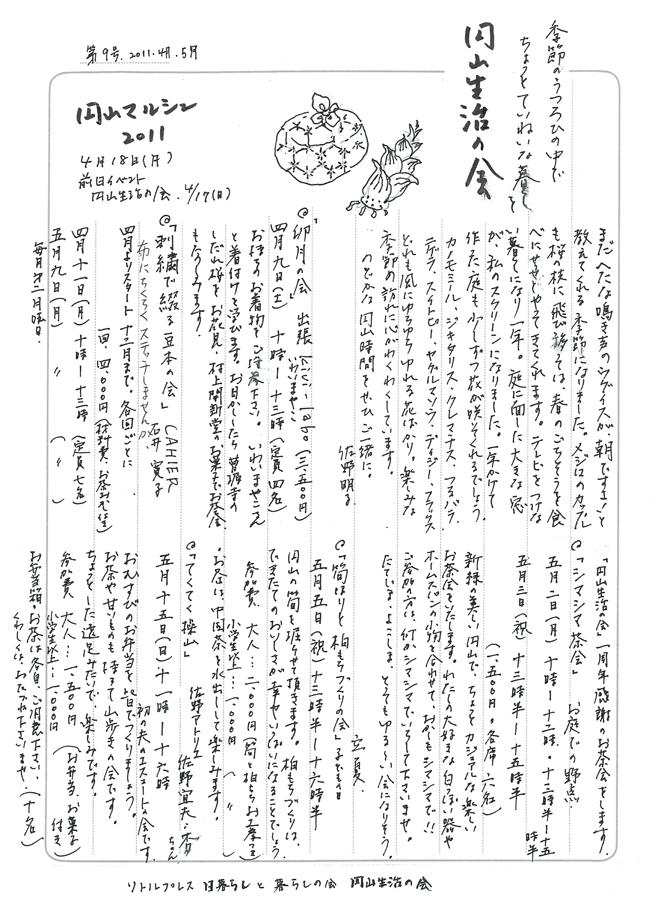 第9号. 2011. 4月. 5月
季節のうつろひの中で
ちょっとていねいな暮しを
円山生活の会
円山マルシェ
2011
4月18日(月)
前日イベント
円山生活の会. 4/17(日)
まだへたな鳴き声のウグイスが、朝ですよ!と
教えてくれる季節になりました。メジロのカップル
も桜の枝に飛び移っては、春のごちそうを食
べにせっせとやってきてくれます。テレビをつけな
い暮しになり一年。庭に面した大きな窓
が、私のスクリーンになりました。一年かけて
作った庭も少しずつ花が咲いてくれるでしょう。
カモミール、ジキタリス、クレマチス、つるバラ、
ニゲラ、スイトピー、ヤグルマソウ、デイジー、フラックス
どれも風にゆらゆらゆれる花ばかり。楽しみな
季節の訪れに心がわくわくしています。
のどかな円山時間をぜひご一緒に。
佐野明子
@「卯月の会」 出張 Kivi-labo (三、五〇〇円)
いわいまやこ
四月九日(土) 十時ー十三時(定員四名)
お持ちのお着物をご持参下さい。いわいまやこさん
と着付けを学びます。お目かしたら曹源寺の
しだれ桜をお花見。村上開新堂のお菓子でお茶会
も楽しみます。
@「刺繍で綴る豆本の会」 CAHIER
石井寛子
布にちくちくステッチしませんか。
四月よりスタート 十二月まで。各回ごとに
一回、四、〇〇〇円(材料費、お茶お弁当付)
四月十一日(月) 十時ー十三時(定員七名)
五月九日(月) 〃 ( 〃 )
毎月第二月曜日。
「円山生活の会」一周年感謝のお茶会をします。
@「シマシマ茶会」 お庭での野点
五月二日(月) 十時ー十二時・十三時半ー十五
時半
五月三日(祝) 十三時半ー十五時半
(一、五〇〇円。各席 六名)
新緑の美しい円山で、ちょっとカジュアルな楽しい
お茶会をいたします。わたしの大好きな白っぽい器や
ホームスパンの小物を合わせて、お菓子もシマシマで!!
ご参加の方は、何かシマシマでいらして下さいませ。
たてしま、よこしま、とってもゆるーい会になりそう。
立夏
@「筍ほりと柏もちづくりの会」 子どもの日
五月五日(祝) 十三時半ー十六時半
円山の筍を掘らせて頂きます。柏もちづくりは、
できたてのおいしさが幸せいっぱいになることでしょう。
参加費、大人…二、〇〇〇円(筍と柏もちお土産つき)
小学生以上…一、〇〇〇円( 〃 )
・お茶は、中国茶を水出しして楽しみます。
@「てくてく操山」 佐野アトリエ
佐野宜夫・杏
ちゃん
五月十五日(日) 十一時ー十六時
初の夫のエスコートの会です。
おむすびのお弁当を皆でつくりましょう。
お茶や甘いものも持って山歩きの会です。
ちょっとした遠足みたいで、楽しみです。
参加費 大人…一、五〇〇円 (お弁当、お菓子
小学生以上…一、〇〇〇円 付き)
お弁当箱・お茶は各自、ご用意下さい。
くわしくは、おたづね下さいませ。(十名)
リトルプレス 日暮らしと 暮らしの会 円山生活の会